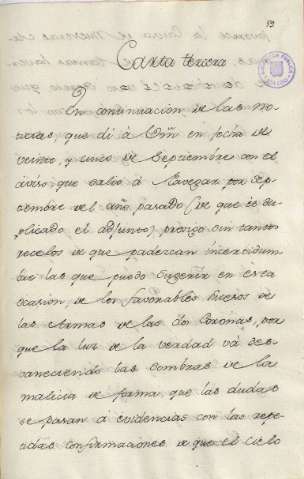 Carta tercera
En continuacion de las no-
ticias, que di à Vm en fecha de
veinte, y cinco de Septiembre con el
aviso, que salio à navegar por Sep-
tiembre del año pasado (de que es du-
plicado el adjunto) prosigo sin tantos
recelos de que padezcan incertidum-
bre las que puedo sugerir en esta
ocasion, de los favorables sucesos de
las Armas de las dos Coronas, por
que la luz de la verdad và des-
vaneciendo las sombras de la
malicia de forma, que las dudas
se pasan à evidencias con las repe-
tidas confirmaciones de que el cielo